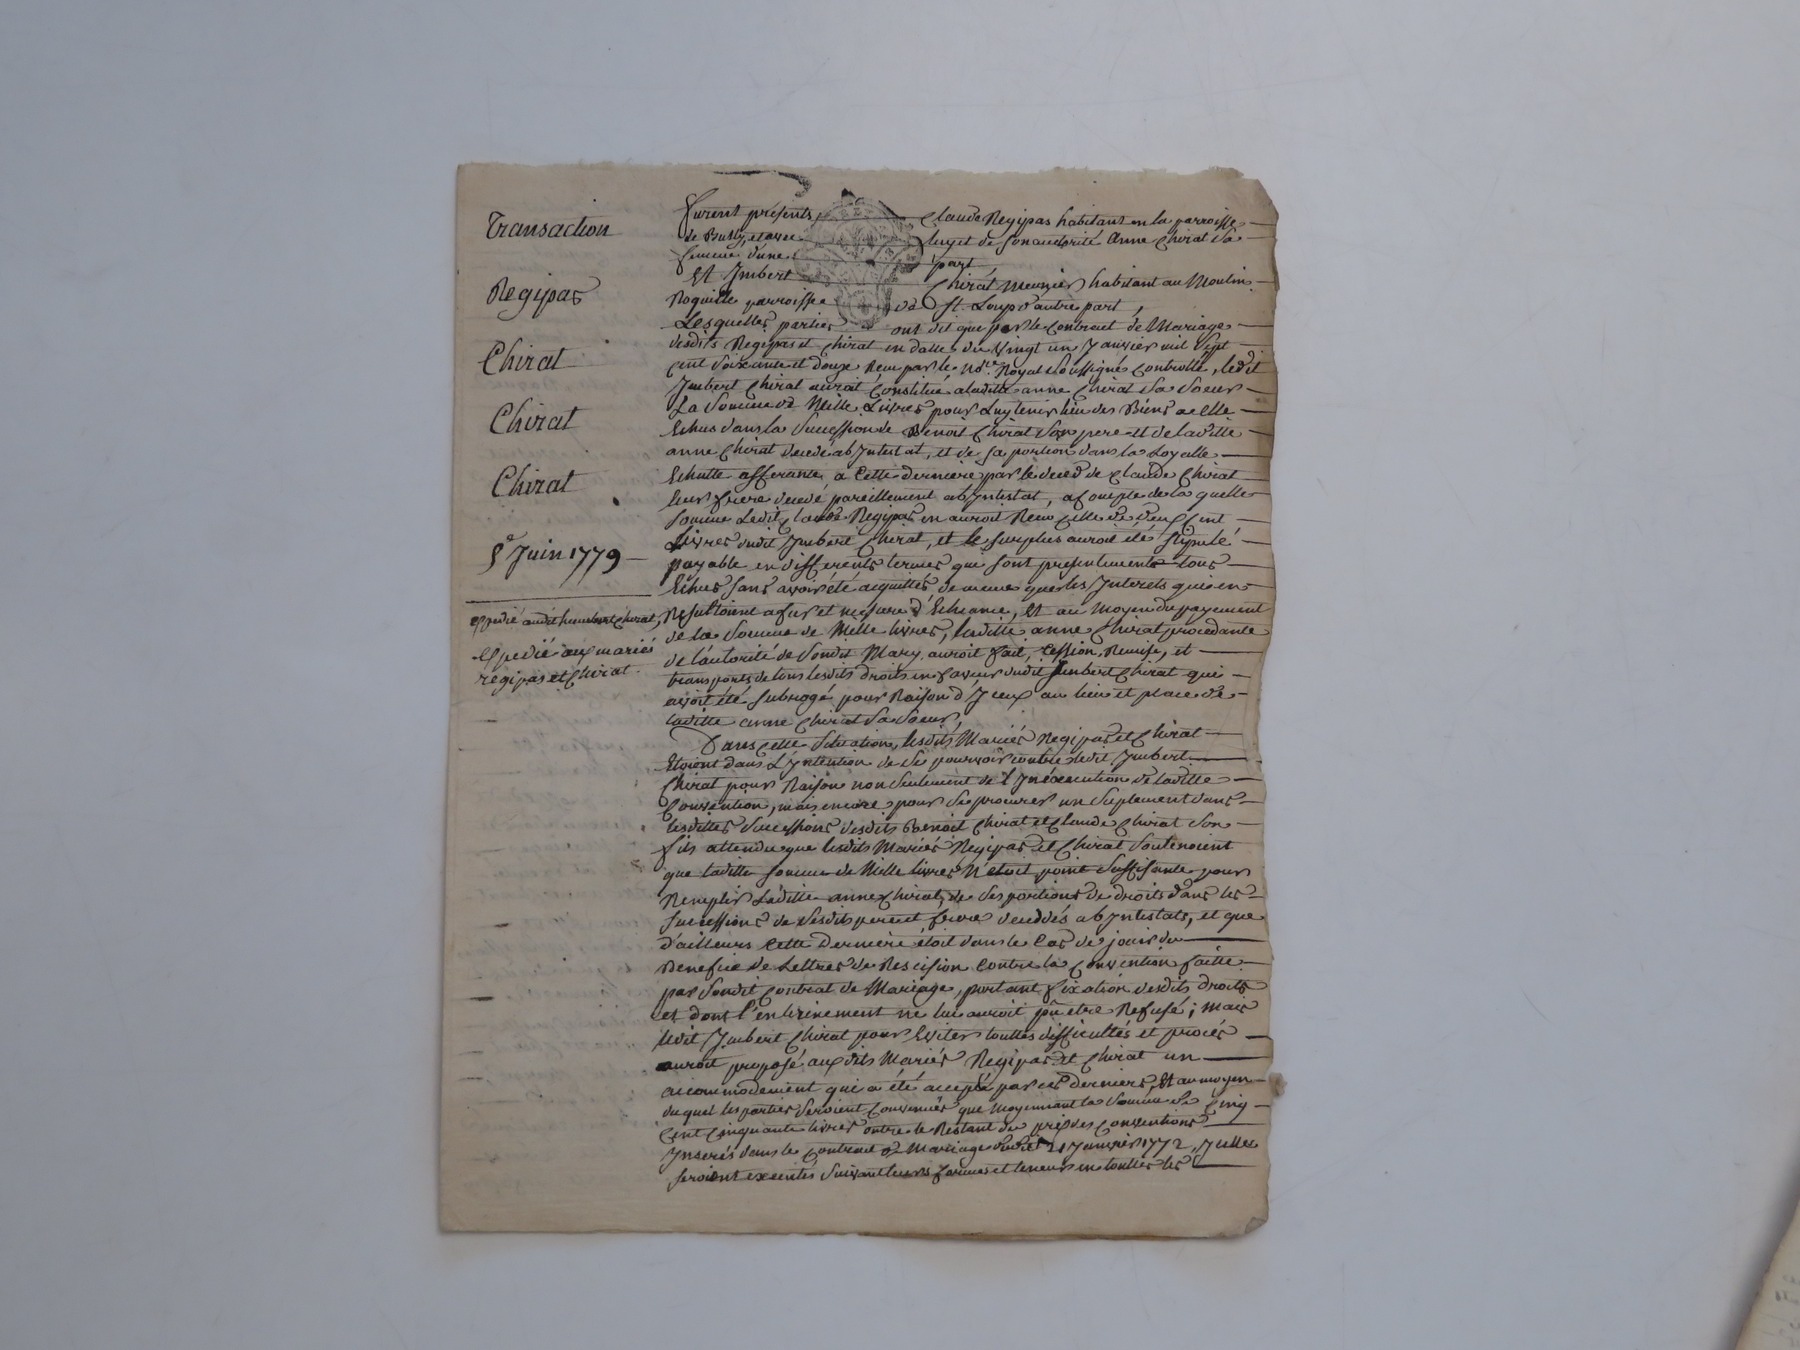 Transaction
Regipas
Chirat
Chirat
Chirat
5e Juin 1779
expedié audit humbert Chirat,
expedié aux mariés
regipas et Chirat.
furent présents Claude Regipas habitant en la parroisse
de Bully, et avec luy et de son authorité Anne Chirat Sa
femme d'une part
Et Imbert Chirat Meunier habitant au Moulin
Roquille parroisse de St. Loup d'autre part,
Lesquelles parties ont dit que par le Contract de Mariage
desdits Regipas et Chirat en datte du Vingt un Janvier mil Sept
cent Soixante et douze Recu par le No.re Royal Soussigné Controllé, ledit
Imbert Chirat auroit Constitué a laditte anne Chirat Sa Soeur
La Somme de Mille Livres pour Luy tenir lieu des Biens a elle
Echus dans la Succession de Benoit Chirat Son pere et de laditte
anne Chirat decedé ab Intestat, et de sa portion dans la Loyalle
Echutte afferante a Cette derniere par le deced de Claude Chirat
leur frere decedé pareillement ab Intestat, a Compte de la quelle
Somme Ledit Claude Regipas en auroit Recu Celle de deux Cent
Livres dudit Imbert Chirat, et le Surplus auroit été Stipulé
payable en differents termes qui sont presentement tous
Echus sans avoir été acquittés, de meme que les Interets qui en
Resultoient a fur et mesure d'Echeance, Et au Moyen du payement
de la Somme de Mille livres, laditte anne Chirat procedante
de l'autorité de Sondit Mary auroit fait, Cession, Remise, et
transports de tous lesdits droits en faveur dudit Imbert Chirat qui
avoit été Subrogé pour Raison d'Iceux au lieu et place de
laditte anne Chirat Sa Soeur,
Dans Cette Situation, lesdits Mariés Regipas et Chirat
Etoient dans L'Intention de Se pourvoir contre ledit Imbert
Chirat pour Raison non Seulement de l'Inéxecution de laditte
Convention, mais encore pour Se procurer un Suplement dans
lesdittes Successions desdits Benoit Chirat et Claude Chirat Son
fils attendu que lesdits Mariés Regipas et Chirat Soutenoient
que laditte somme de Mille livres N'étoit point Suffisante pour
Remplir Laditte anne Chirat, de Ses portions de droits dans les
Successions de Sesdits pere et frere decedés ab Intestats, et que
d'ailleurs Cette derniere étoit dans le Cas de jouir du
Benefice de Lettres de Rescision Contre la Convention faitte
par Sondit Contrat de Mariage, portant fixation desdits droits
et dont l'entherinement ne luy auroit pû etre Refusé; Mais
ledit Imbert Chirat pour Eviter touttes difficultés et procés
auroit proposé auxdits Mariés Regipas et Chirat un
accommodement qui a été accepté par ces derniers, Et au moyen
duquel les parties Seroient Convenües que Moyennant la Somme de Cinq
Cent Cinquante livres outre le Restant du prix des Conventions
Inserés dans le Contract de Mariage dudit 21 Janvier 1772, Icelles
seroient executés Suivant leurs formes et teneurs en touttes les